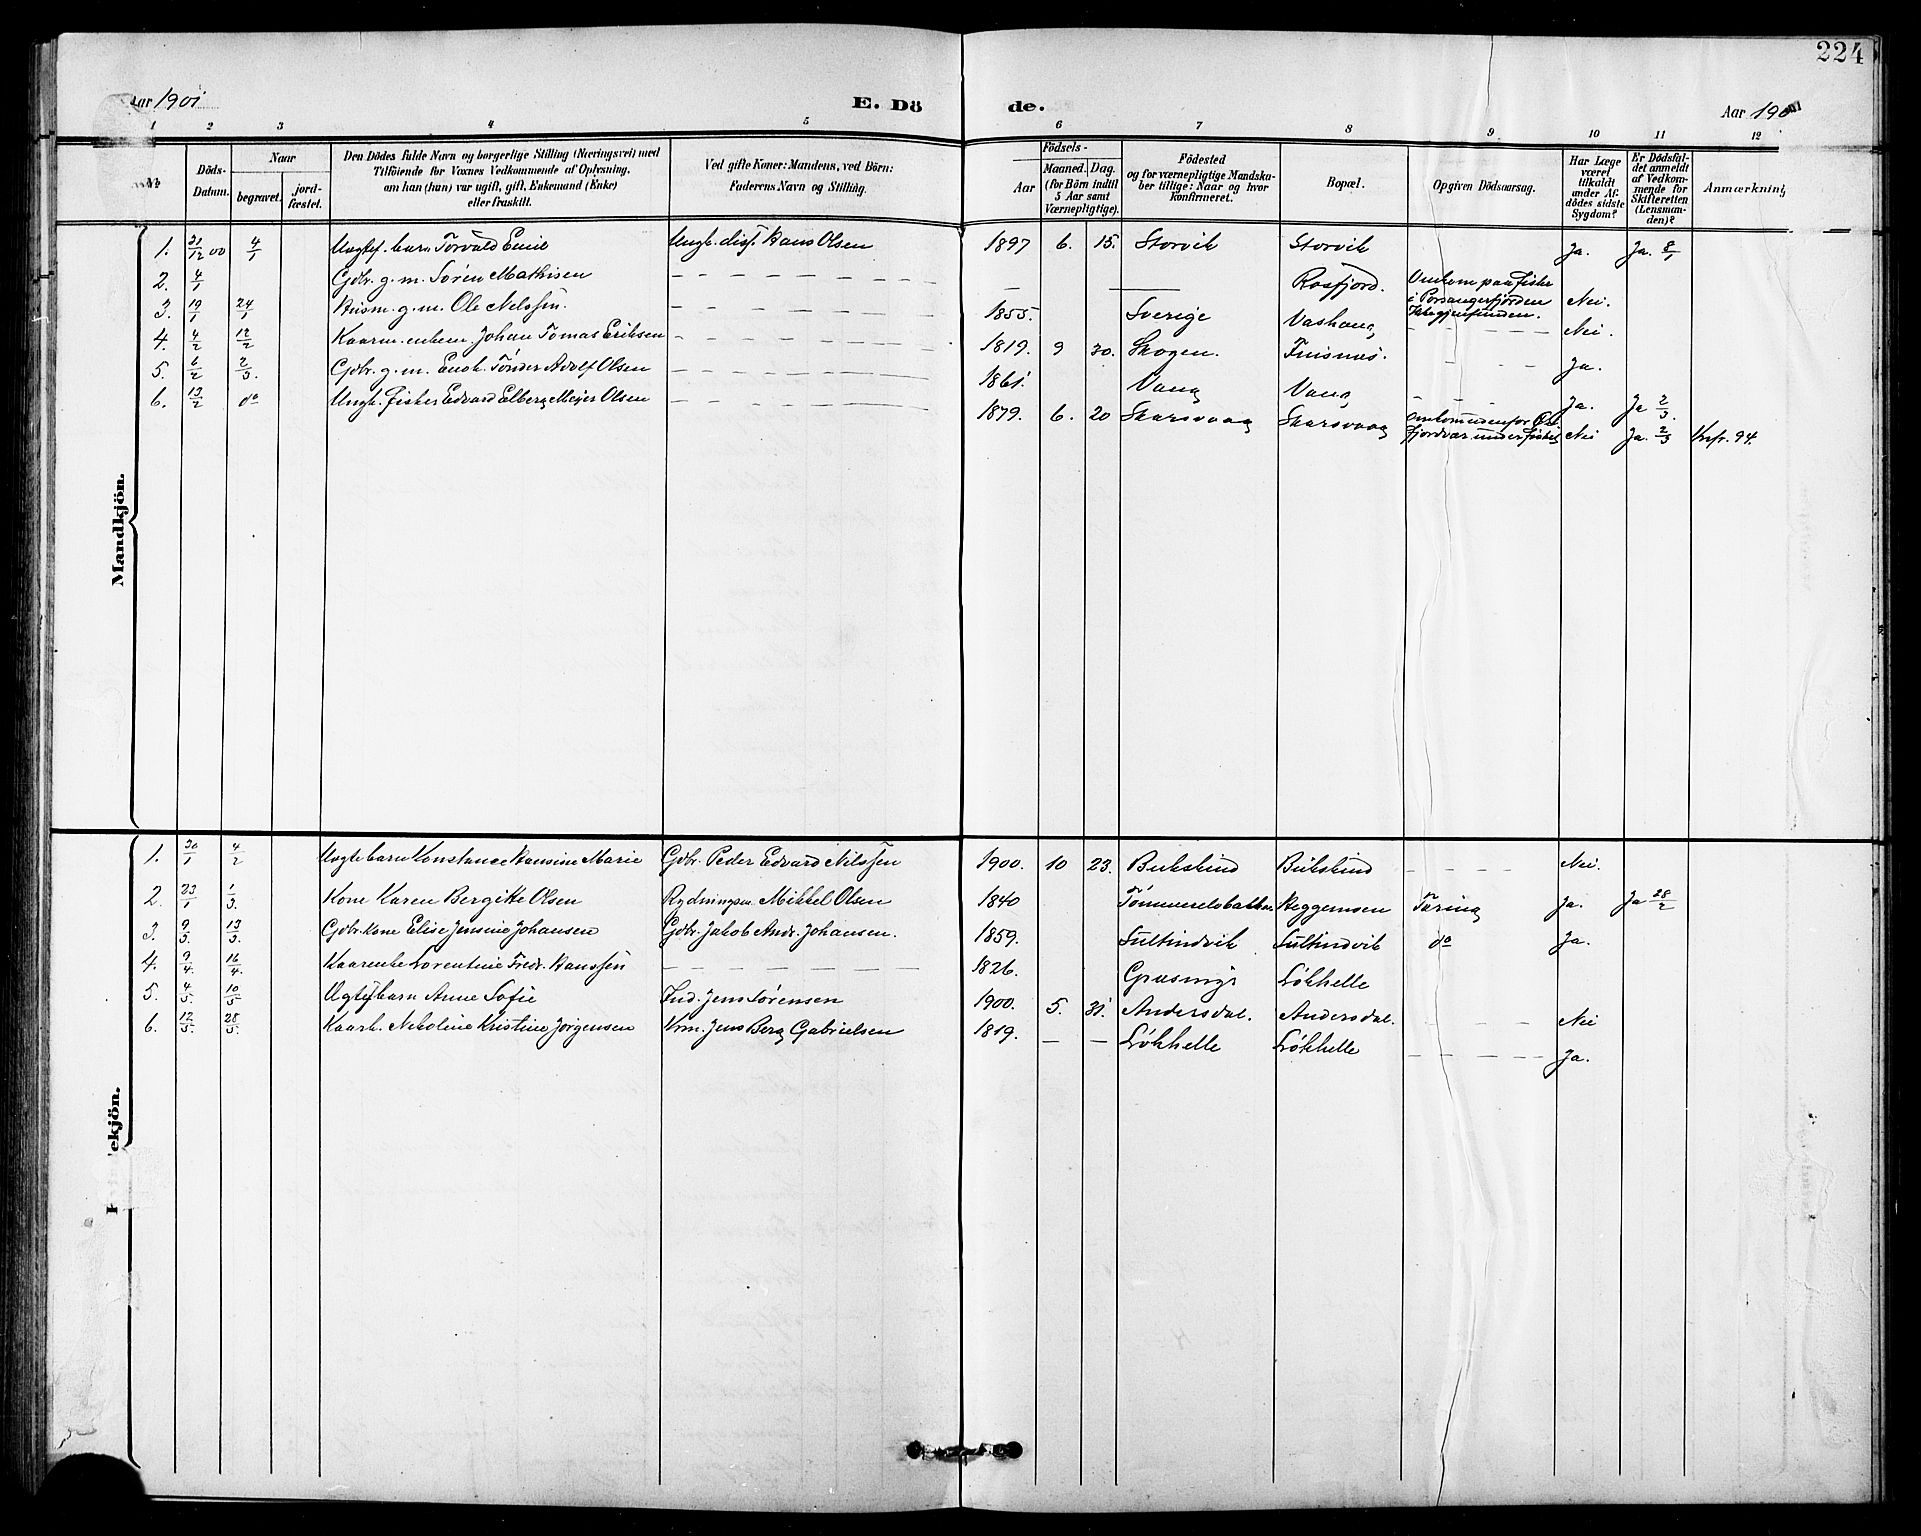 224
Aar 1901
E. Dö
de.
Aar 1901
1 2 3 4 5 6 7 8 9 10 11 12
No
Döds-Datum.
Naar
begravet.
jord-fæstet.
Den Dödes fulde Navn og borgerlige Stilling (Næringsvei) med
Tilföiende for Voxnes Vedkommende af Oplysning,
om han (hun) var ugift, gift, Enkemand (Enke)
eller fraskilt.
Ved gifte Koner: Mandens, ved Börn:
Faderens Navn og Stilling.
Födsels-
Aar
Maaned. Dag.
(for Börn indtil
5 Aar samt
Værnepligtige).
Födested
og for værnepligtige Mandska-
ber tillige: Naar og hvor
konfirmeret.
Bopæl.
Opgiven Dödsaarsag.
Har Læge
været
tilkaldt
under Af-
dödes sidste
Sygdom?
Er Dödsfal-
det anmeldt
af Vedkom-
mende for
Skifteretten
(Lensman-
den)?
Anmærkning
Mandkjön.
1. 31/12 00 4/1 Uegtef. barn Torvald Emil Ungk. Hans Olsen 1897 6. 15. Storvik Storvik Ja. Ja. 8/1
2. 4/1 Gdbr. g. m. Søren Mathisen — — — — Rosfjord. Omkom paa fiske
i Porsangerfjorden
Ikke gjenfunden. Nei.
3. 19/1 24/1 Husm. g. m. Ole Nilssen. — — — 1855. Sverige Vashaug — — — Nei.
4. 4/2 12/2 Kaarm. enkem. Johan Tomas Eriksen — — — 1819. 9 30. Skogen. Finsnes. — — — Ja.
5. 6/2 2/3. Gdbr. g. m. Enok Tönder Adolf Olsen — — — 1861. Vang Vang — — — Ja. Ja 2/3.
6. 13/2 do Ungk. Fisker Edvard Elberg Mejer Olsen — — — 1879. 6. 20 Skarsvaag Skarsvaag omkommen for
Fjordvær under fiske Nei Ja. 2/3 Knfr. 94.
ekjön.
1. 30/1 4/2 Uegte barn Konstance Hansine Marie Gdbr. Peder Edvard Nilssen 1900. 10 23. Bukskind Bukskind — — — Nei.
2. 23/1 1/3. Kone Karen Bergitte Olsen Rydningsm. Mikkel Olsen 1840 Heggemoen Tæring Ja. Ja 28/2
3. 9/3. 13/3. Gdbr. kone Elise Jensine Johansen Gdbr. Jakob Andr. Johansen. 1859. Sultindvik Sultindvik do Ja.
4. 9/4. 16/4. Kaarenke Lorentine Fredr. Hanssen — — — 1826. Græsmyr Løkhelle
5. 4/5. 10/5 Uegtef barn Anne Sofie Ind. Jens Sørensen 1900. 5. 31. Andersdal. Andersdal. — — — Nei
6. 12/5. 28/5. Kaark. Nikoline Kristine Jörgensen Krm. Jens Berg Gabrielsen 1819. — — Løkhelle Løkhelle — — — Ja.